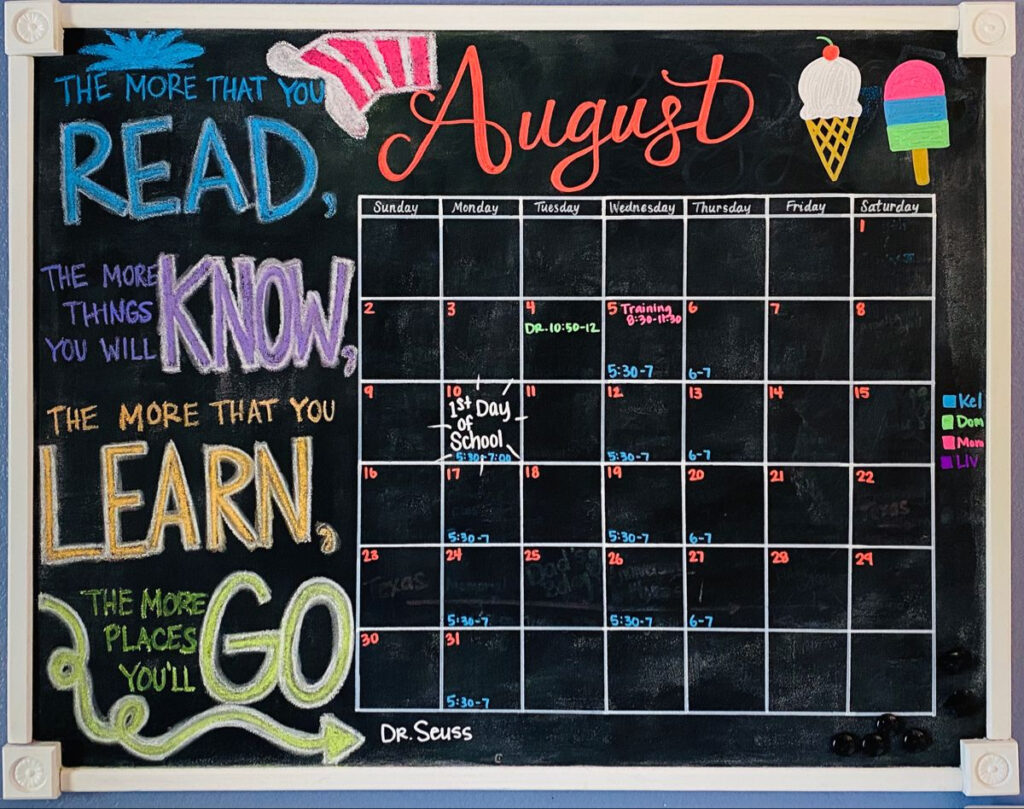 THE MORE THAT YOU
READ,
THE MORE
THINGS
YOU WILL
KNOW,
THE MORE THAT YOU
LEARN,
THE MORE
PLACES
YOU'LL
GO
August
Sunday Monday Tuesday Wednesday Thursday Friday Saturday
1
2 3 4 5 6 7 8
DR. 10:50-12
Training
8:30-11:30
5:30-7 6-7
9 10 11 12 13 14 15
1st Day
of
School
5:30-7:00 5:30-7 6-7
16 17 18 19 20 21 22
Texas
5:30-7 5:30-7 6-7
23 24 25 26 27 28 29
Texas
5:30-7 5:30-7 6-7
30 31
5:30-7
Kel
Dom
Liv
DR. Seuss